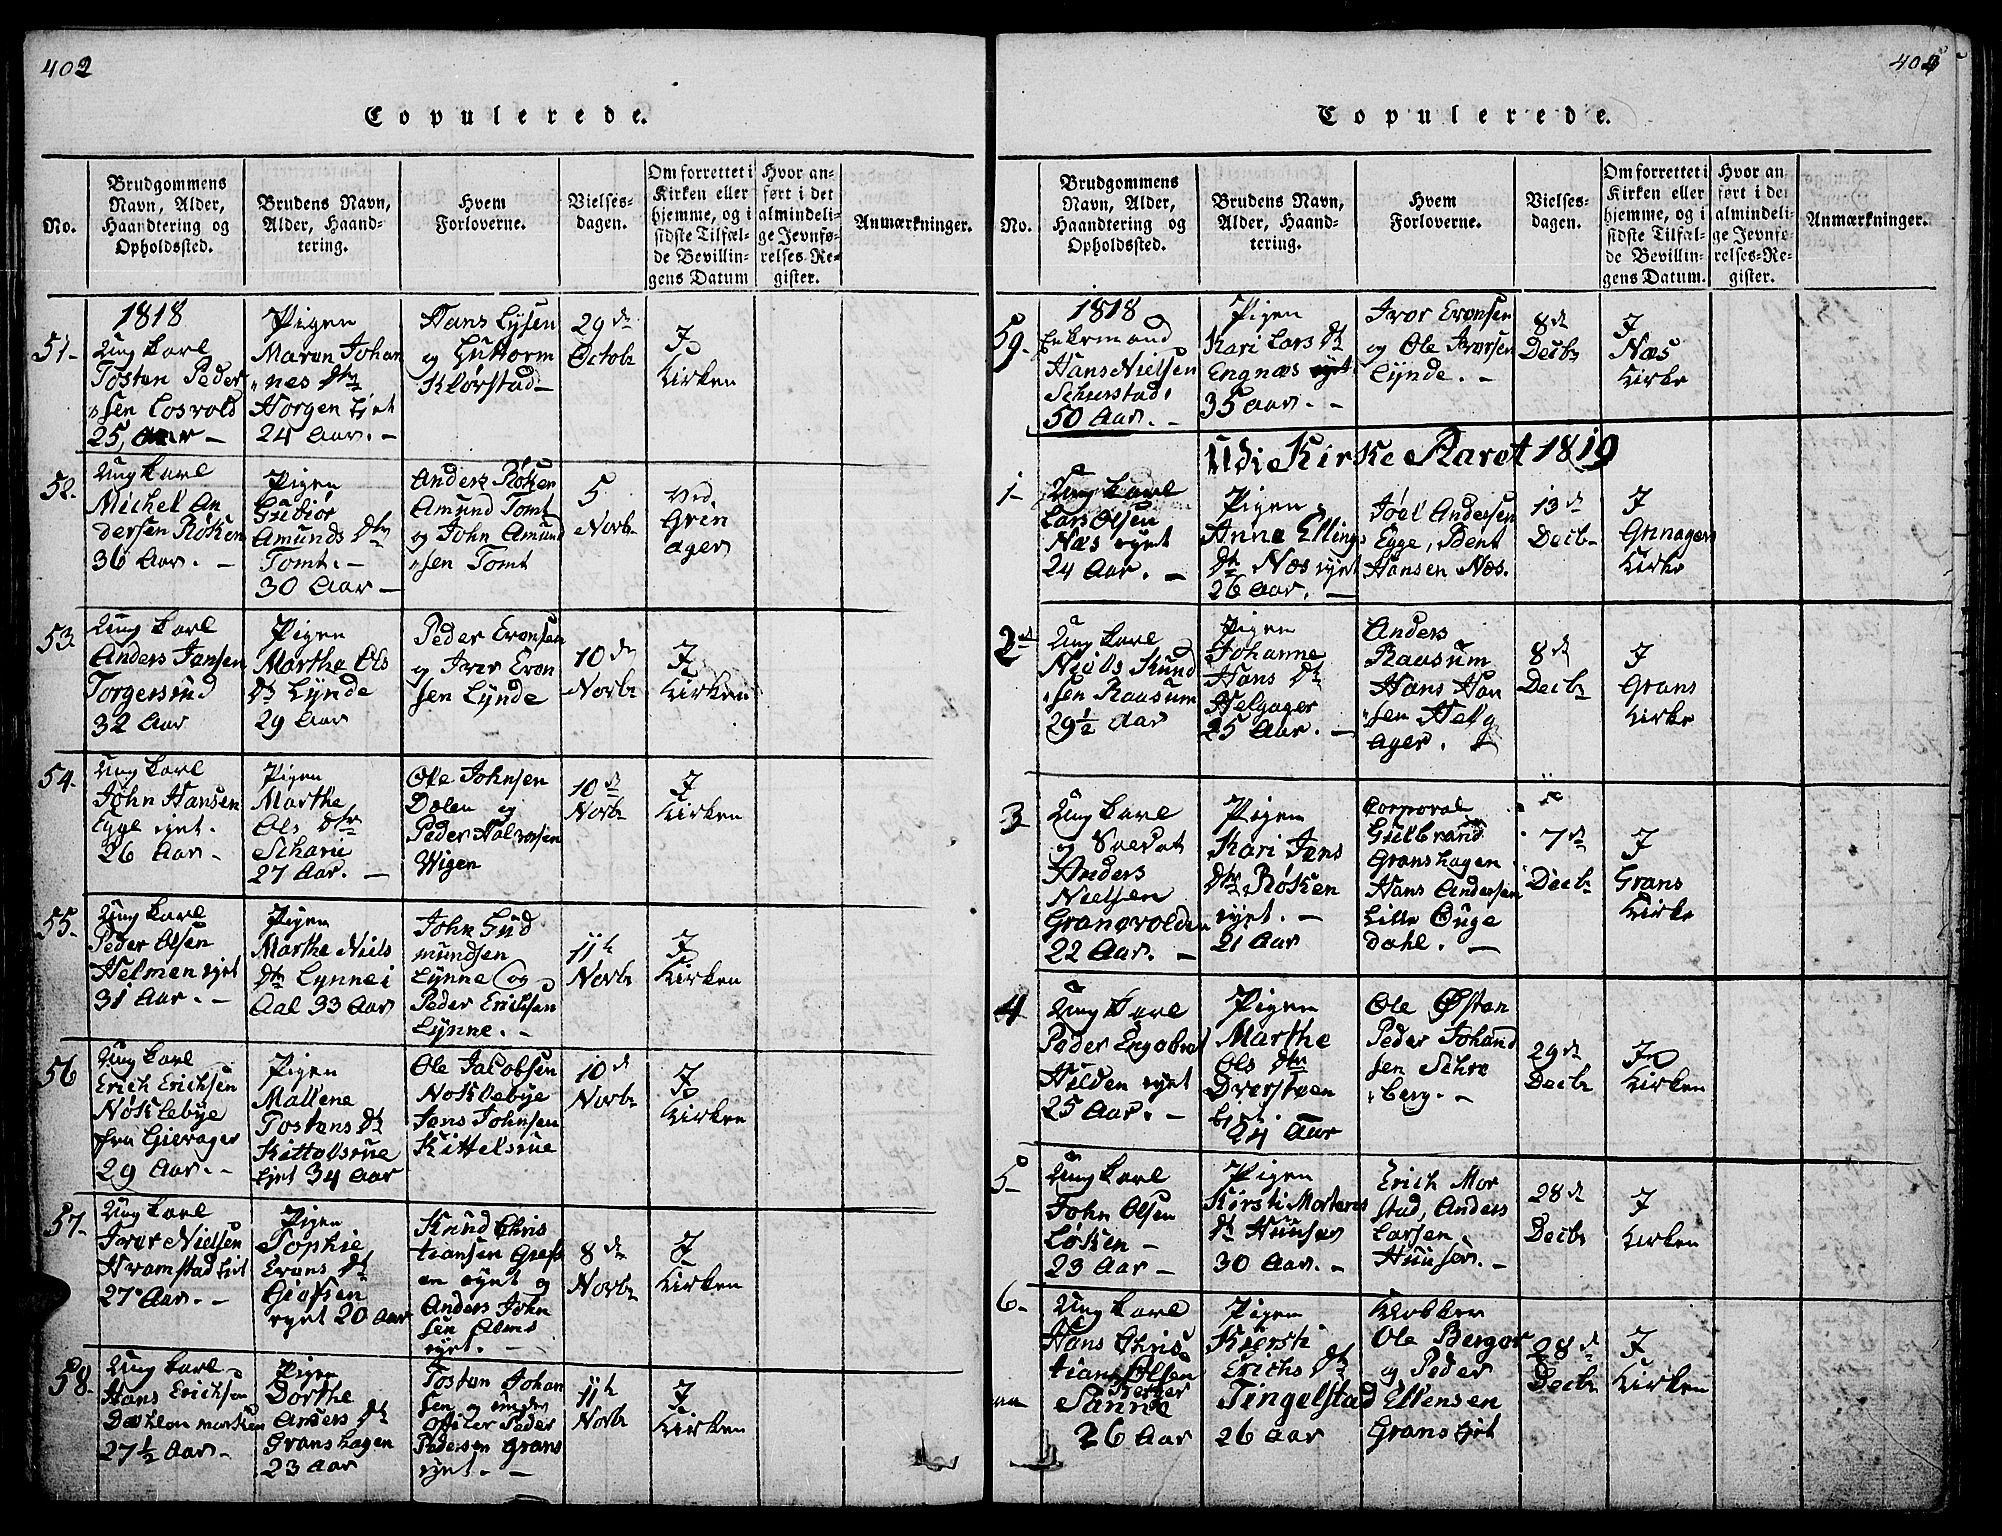 402
Copulerede.
No.
Brudgommens
Navn, Alder,
Haandtering og
Opholdssted.
Brudens Navn,
Alder, Haand-
tering.
Hvem
Forloverne.
Vielses-
dagen.
Om forrettet i
Kirken eller
hjemme, og i
sidste Tilfæl-
de Bevillin-
gens Datum
Hvor an-
ført i det
almindeli-
ge Jevnfø-
relses-Re-
gister.
Anmærkninger.
51-
1818
Ung karl
Tosten Peder
sen Losvold
25, Aar -
Pigen
Maren Johan
nes Dtr
Horgen Ejet
24 Aar. -
Hans Lysen
og Guttorm
Klørstad -
29 de
Octobr
I
Kirken
52.
Ung karl
Michel An
dersen Røken
36 Aar. -
Pigen
Gubiør
Amunds Dtr
Tomt. -
30 Aar -
Anders Røken
Amund Tomt
og John Amund
sen Tomt
5
Novbr
Ved
Grin
ager
53
Ung karl
Anders Jansen
Torgersrud
32 Aar
Pigen
Marthe Ols
Dtr Lynde
29 Aar
Peder Evensen
og Iver Even
sen Lynde
10 de
Novbr
I
Kirken
54.
Ung karl
John Hansen
Egge ejet.
26 Aar. -
Pigen
Marthe
Ols Dtr
Scharie
27 Aar. -
Ole Johnsen
Dølen og
Peder Halvorsen
Wigen
10 de
Novbr
I
Kirken
55.
Ung karl
Peder Olsen
Helmen ejet
31 Aar. -
Pigen
Marthe Niels
Dtr Lynne i
Aal 33 Aar
John Gud
mundsen
Lynne og
Peder Erichsen
Lynne. -
11te
Novbr
I
Kirken
56
Ung karl
Erich Erichsen
Nøklebye
fra Gierager
29 Aar. -
Pigen
Mallene
Tostens Dtr
Kittelsrue
Ejet 34 Aar
Ole Jacobsen
Noklebye
Jens Johnsen
Kittelsrue
10 de
Novbr
I
Kirken
57-
Ung karl
Iver Nielsen
Hvamstad Ejet
27 Aar. -
Pigen
Sophie
Evens Dtr
Giefsen
ejet 20 Aar
Knud Chris
tiansen Grefs
en ejet og
Anders John
sen Alms
ejet. -
8 de
Novbr
I
Kirken
58.
Ung karl
Hans Erichsen
Dæhlen marken
27½ Aar -
Pigen
Dorthe
Anders Dtr
Granshagen
23 Aar
Tosten Johan
sen og under
officer Peder
Pedersen Grans
ejet. -
11te
Novbr
I
Kirken
Copulerede.
No.
Brudgommens
Navn, Alder,
Haandtering og
Opholdssted.
Brudens Navn,
Alder, Haand-
tering.
Hvem
Forloverne.
Vielses-
dagen.
Om forrettet i
Kirken eller
hjemme, og i
sidste Tilfæl-
de Bevillin-
gens Datum.
Hvor an
ført i det
almindeli-
ge Jevnfø-
relses-Re-
gister.
Anmærkninger.
59.
1818
Enkemand
Hans Nielsen
50 Aar. -
Pigen
Kari Lars Dtr
Engnæs ejet
35 Aar. -
Iver Evensen
og Ole Iversen
Lynde. -
8 de
Decbr
I
Næs
Kirke
Udi Kirke Aaret 1819
1-
Ung karl
Lars Olsen
Næs ejet
24 Aar. -
Pigen
Anne Ellings
Dtr Næs ejet
26 Aar. -
Joel Andersen
Egge,
Hansen Næs.
13 de
Decbr
I
Grinagers
Kirke
2
Ung karl
Niels Knud
sen Raasum
29½ Aar
Pigen
Johanne
Hans Dtr
Helgager
25 Aar. -
Anders
Raasum
Hans Han
sen Helg
Ager.
8 de
Decbr
I
Grans
Kirke
3
Ung karl
og Soldat
Anders
Nielsen
Granevolden
22 Aar. -
Pigen
Kari Jens
Dtr Røken
ejet. -
21 Aar
Corporal
Gulbrand
Granshagen
Hans Andersen
Lille Onge
dahl. -
7 de
Decbr
I
Grans
Kirke
4
Ung karl
Peder Engebret
Hilden ejet
25 Aar. -
Pigen
Marthe
Ols Dtr
Dværsteen
24 Aar
Ole Østen
Peder Johand
sen Schre
berg. -
29 de
Decbr
I
Kirken
5-
Ung karl
John Olsen
Løken -
23 Aar -
Pigen
Kirsti Mortens
Dtr Hunser
30 Aar. -
Erich Mor
stad, Anders
Larsen
Hunser. -
28 de
Decbr
I
Kirken
6-
Ung karl
Hans Chris
tian Olsen
Berger
Sanne
26 Aar
Pigen
Kiersti
Erichs Dtr
Tingelstad
26 Aar
Klokker
Ole Berger
og Peder
Ellensen
Grans Ejet
28 de
Decbr
I
Kirken